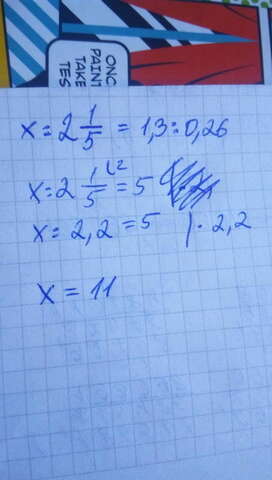 ONC
PAINT
TAKE
TES
x : 2 1/5 = 1,3 : 0,26
x : 2 1/5 = 5
x : 2,2 = 5 | · 2,2
x = 11